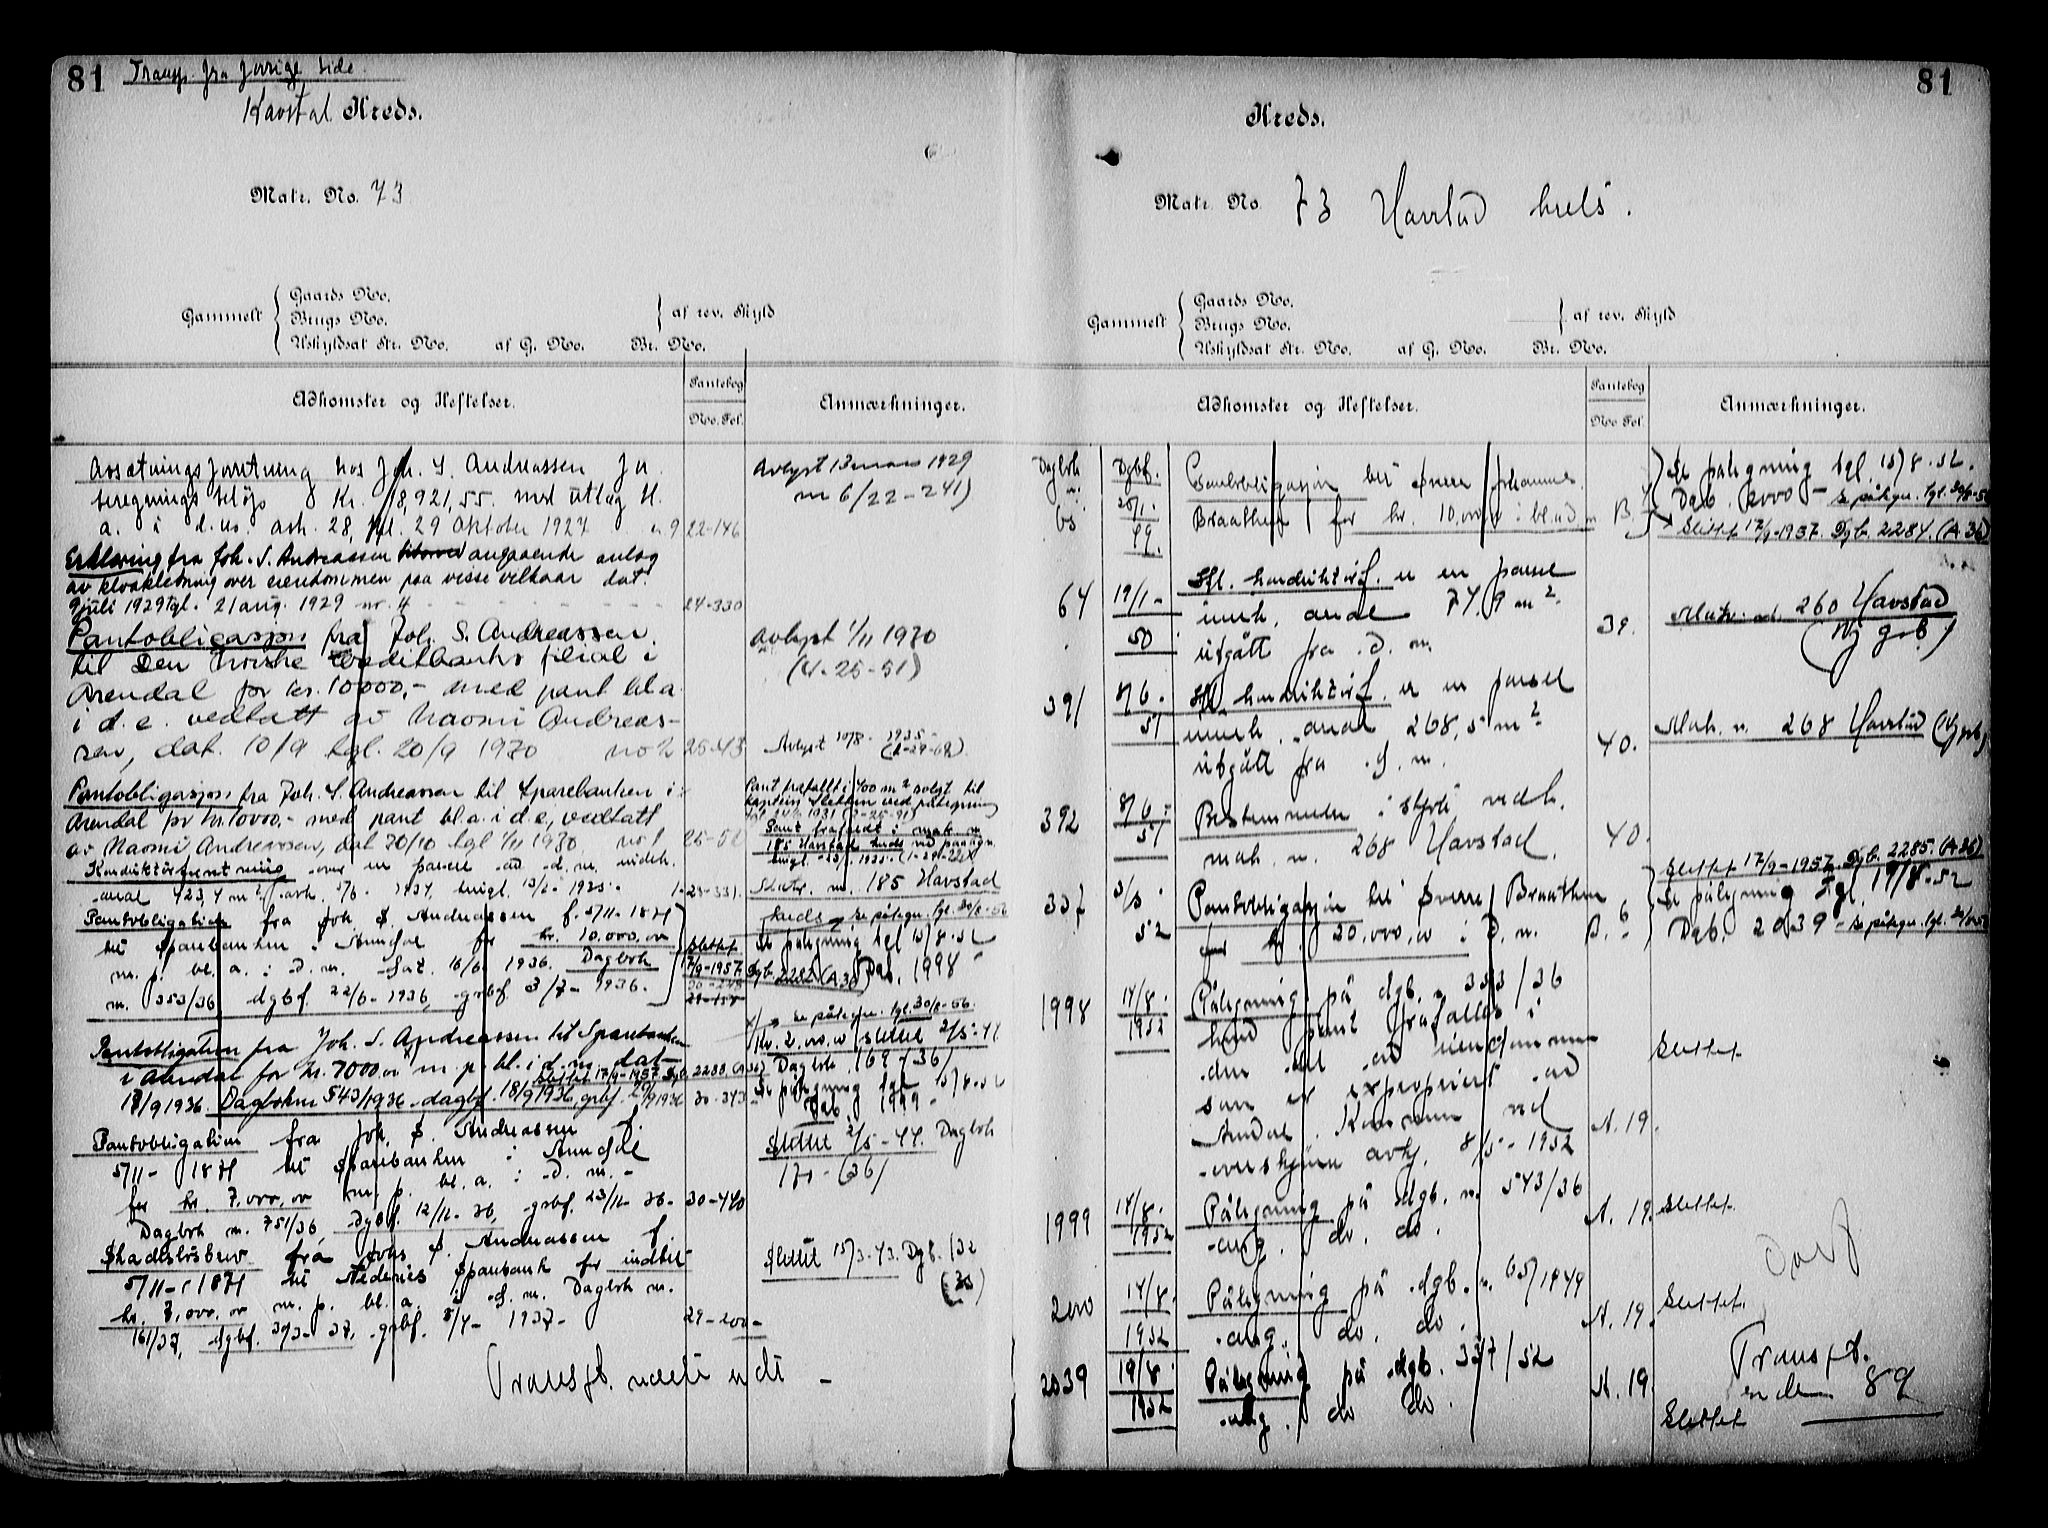 81 Transp. fra forrige side
Havstad Kreds.
Matr. No. 73
Gammelt
Gaards No.
Brugs No.
Uskyldsat Str. No. af G. No. Br. No.
af rev. Skyld
Adkomster og Heftelser.
Pantebog
No. Fol.
Anmærkninger.
Avsætningsforretning hos Joh. S. Andreassen for
beregningsbeløp Kr. 18,921,55. med utlæg bl.
a. i d. m. avh. 28, tgl. 29 Oktober 1927 n 9 22-146
Avlyst 13 mars 1929
nr 6/22-241)
Erklæring fra Joh. S. Andreassen angaaende anlæg
av kloakledning over eiendommen paa visse vilkaar dat.
9 juli 1929 tgl. 21 aug. 1929 nr. 4 24-330
Pantobligasjon fra Joh. S. Andreassen
til Den Norske Creditbanks filial i
Arendal for kr. 10000,- med pant bl.a.
i d.e. vedtatt av Naomi Andreas-
sen, dat. 10/9 tgl. 20/9 1930 no 2 25-43
Avlyst 1/11 1930
(4-25-51)
Avlyst 10/8- 1935-
Pantobligasjon fra Joh. S. Andreassen til Sparebanken i
Arendal for kr. 10000,- med pant bl.a. i d.e, vedtatt
av Naomi Andreassen, dat 30/10 tgl 1/11 1930, no 1 25-52
Pant frafallt i 700 m² solgt til
kaptein Slettum ved påtegning
Pant frafaldt i matr. nr
185 Havstad kreds ved paategn.
Konduktørforretning over en parcel av d. m. indeh.
areal 423,4 m² avh. 7/6- 1934, tingl. 1935- 1-29-331.
Matr. nr. 185 Havstad
kreds
Pantobligation fra Joh. S. Andreassen f. 5/11-1871
til Sparebanken i Arendal for kr. 10.000,00
m. p. bl. a. i d. m. Dat. 16/6 1936. Dagbok
nr. 353/36, dgbf. 22/6-1936, grbf. 3/7-1936.
Slettet
17/9-1957.
Dgb. 2282 (A 36)
se påtegn. tgl. 30/8-56
Se påtegning tgl 15/8-52
Dgb. 1998
Pantobligation fra Joh. S. Andreassen til Sparebanken
i Arendal for kr. 7000,00 m. p. bl. i d. m. dat
18/9 1936. Dagboknr 543/1936 dagbf. 18/9 1936, grbf. 29/9 1936 30-343
Slettet 17/9-1957. Dgb. 2283 (A 36)
se påtegn. tgl. 30/8-56.
Kr. 2.000,00 slettet 2/5-41
Dagbok 169-(36)
Se påtegning tgl 15/8-52
Dgb. 1999
Pantobligation fra Joh. S. Andreassen f.
5/11- 1871 til Sparebanken i Arendal
for kr. 7.000,00 m. p. bl. a. i d. m. -
Dagbok nr. 751/36, dgbf. 12/12-36, grbf. 23/12-36- 30-440
Slettet 2/5-44. Dagbok
170-(36)
Skadesløsbrev fra Johs S. Andreassen f.
5/11-1871 til Nedenes Sparebank for indtil
kr. 7.000,00 m. p. bl. a. i d. m. Dagbok nr.
161/37, dgbf. 30/3-37, grbf. 5/4- 1937- 29-200-
Slettet 15/3-43. Dgb. 132
Transpt. næste side -
81
Kreds.
Matr. No. 73 Havstad kreds.
Gammelt
Gaards No.
Brugs No.
Uskyldsat Str. No. af G. No. Br. No.
af rev. Skyld
Adkomster og Heftelser.
Pantebog
No. Fol.
Anmærkninger.
Dagbok nr. Dgbf.
65 25/1- 49. Pantobligasjon til Sverre Johannes
Braathen for kr. 10.000,00 i bl.a. d. m. B.
Se påtegning tgl. 15/8-52.
Dgb. 2000 - se påtegn. tgl. 30/8-56
Slettet 17/9-1957. Dgb. 2284. (A 36)
64 19/1- 50 Hfl. konduktørf. o. en parsel
inneh. areal 74,9 m².
utgått fra d. m. 39.
Matr. nr. 260 Havstad
(Ny grb)
391 8/6- 51 Hfl. konduktørf. o. en parsel
inneh. areal 268,5 m²
utgått fra d. m. 40.
Matr. nr. 268 Havstad (Ny grb)
392 8/6- 51 Bestemmelse i skjøte vedk.
matr. nr. 268 Havstad. 40.
337 5/3- 52 Pantobligasjon til Sverre Braathen
for kr. 20.000,00 i d. m. B. 6
Slettet 17/9-1957. Dgb. 2285. (A 36)
Se påtegning tgl 19/8-52
Dgb. 2039 - se påtegn. tgl. 30/8-56
1998 14/8- 1952 Påtegning på dgb. nr. 353/36
hvor pant frafalles i
den del av eiendommen
som er expropriert av
Arendal Kommune ved
overskjønn avhj. 8/5-1952 A. 19.
Slettet
1999 14/8- 1952 Påtegning på dgb. nr. 543/36
ang. do. do. A. 19.
Slettet.
2000 14/8- 1952 Påtegning på dgb. nr. 65/1949
ang. do. do. A. 19.
Slettet.
2039 19/8- 1952 Påtegning på dgb. 337/52
ang. do do. A. 19.
Transpt.
side 89
Slettet